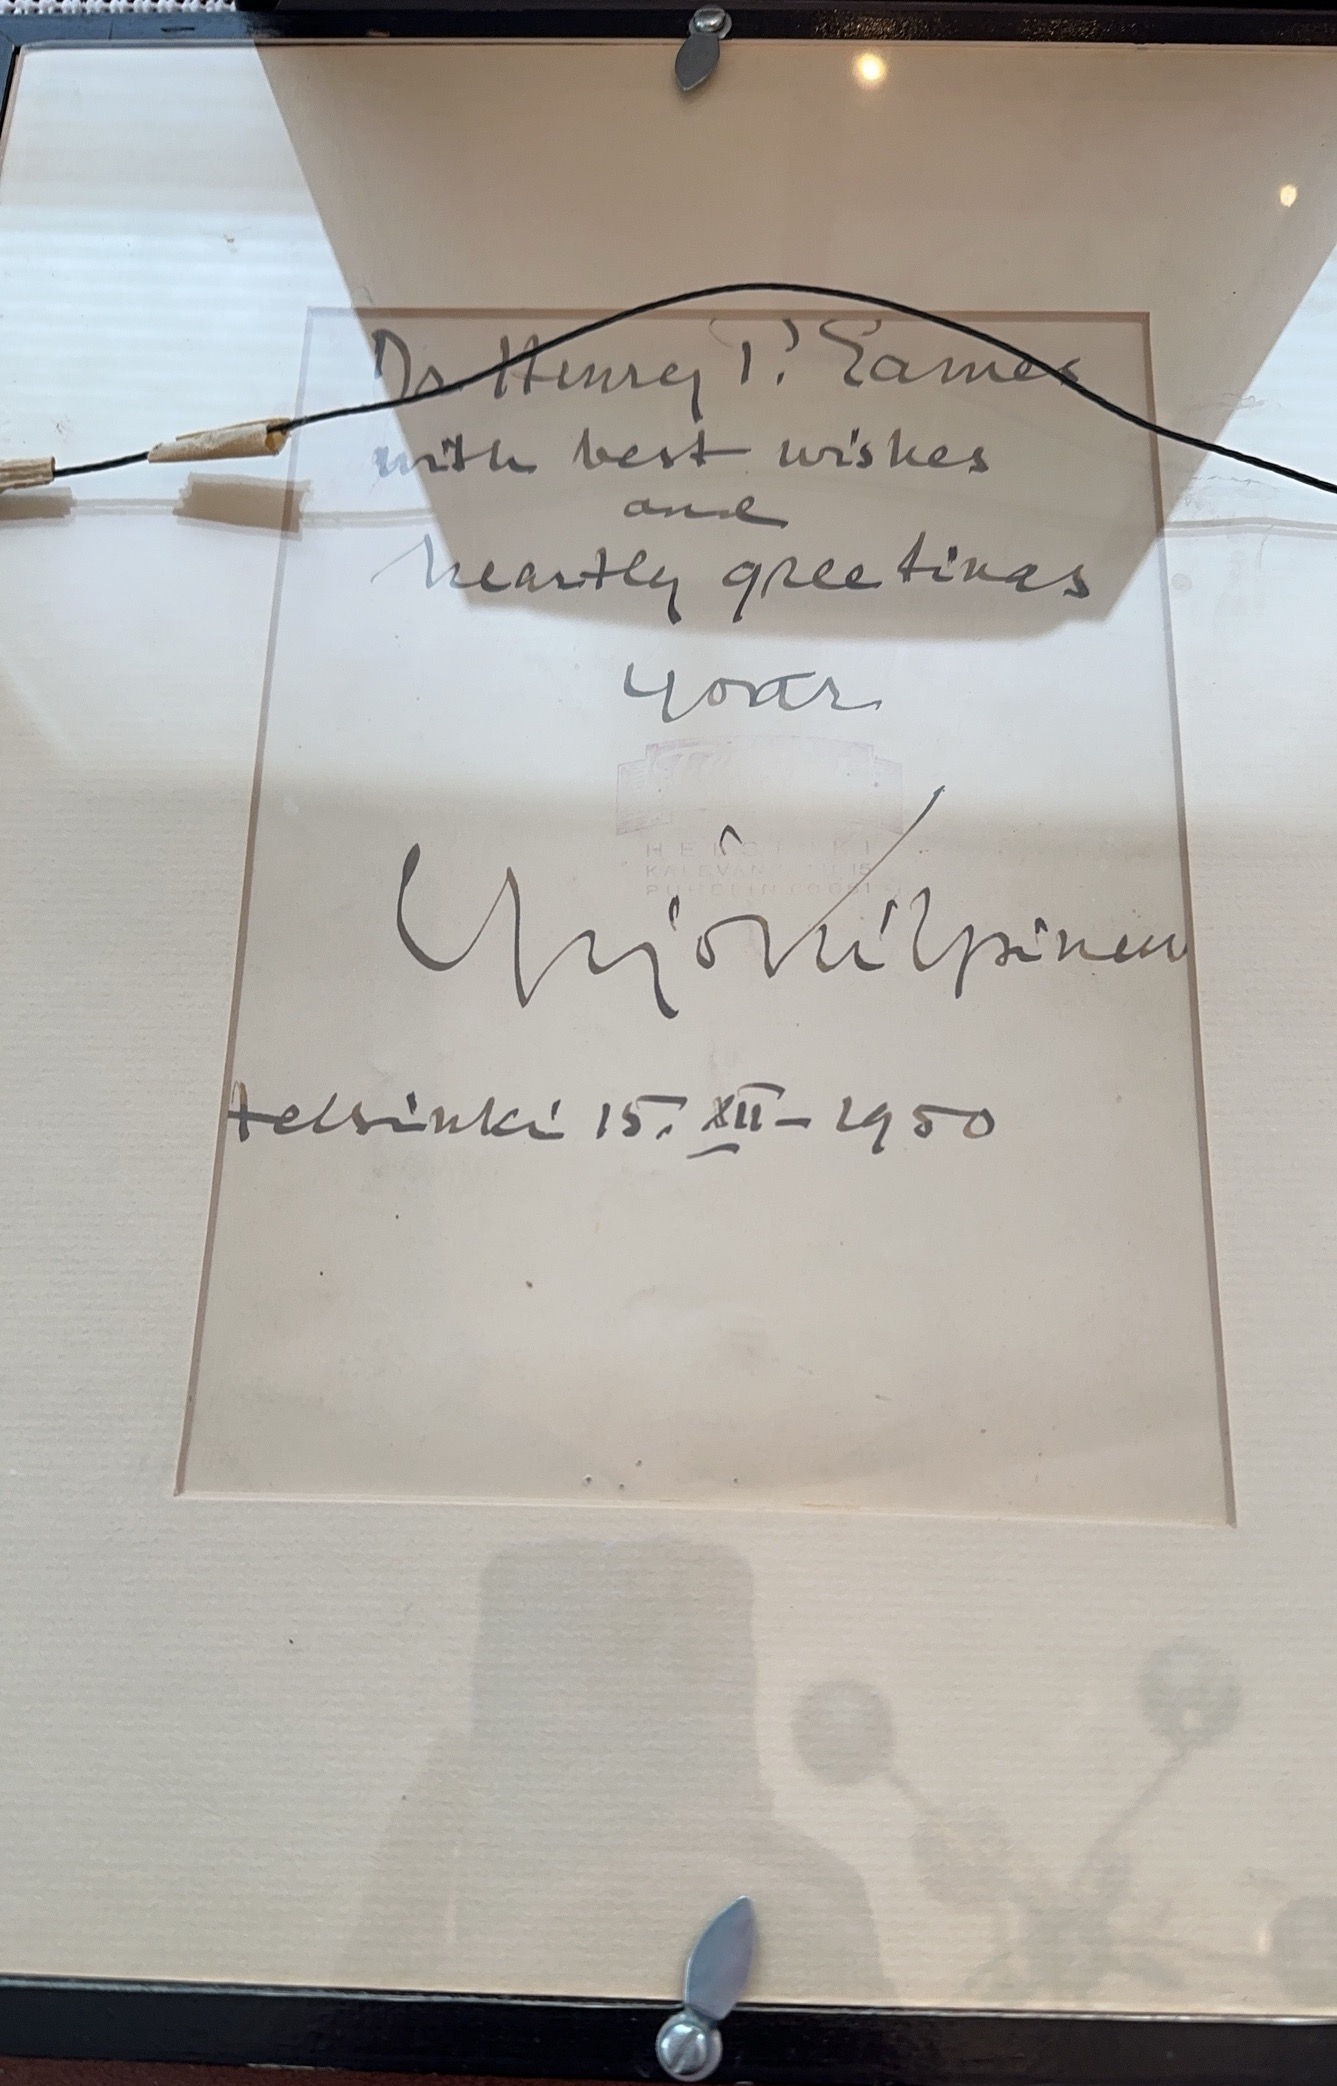 Dr. Henry P. Eames
with best wishes
and
heartly greetings
your
HELSINKI
PUHELIN
Yrjö Kilpinen
Helsinki 15. XII - 1950